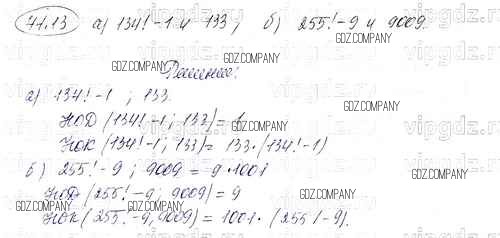 41.13 а) 134! - 1 и 133; б) 255! - 9 и 9009.
Решение:
а) 134! - 1; 133.
НОД (134! - 1; 133) = 1
НОК (134! - 1; 133) = 133 · (134! - 1)
б) 255! - 9; 9009 = 9 · 1001
НОД (255! - 9; 9009) = 9
НОК (255! - 9, 9009) = 1001 · (255! - 9).